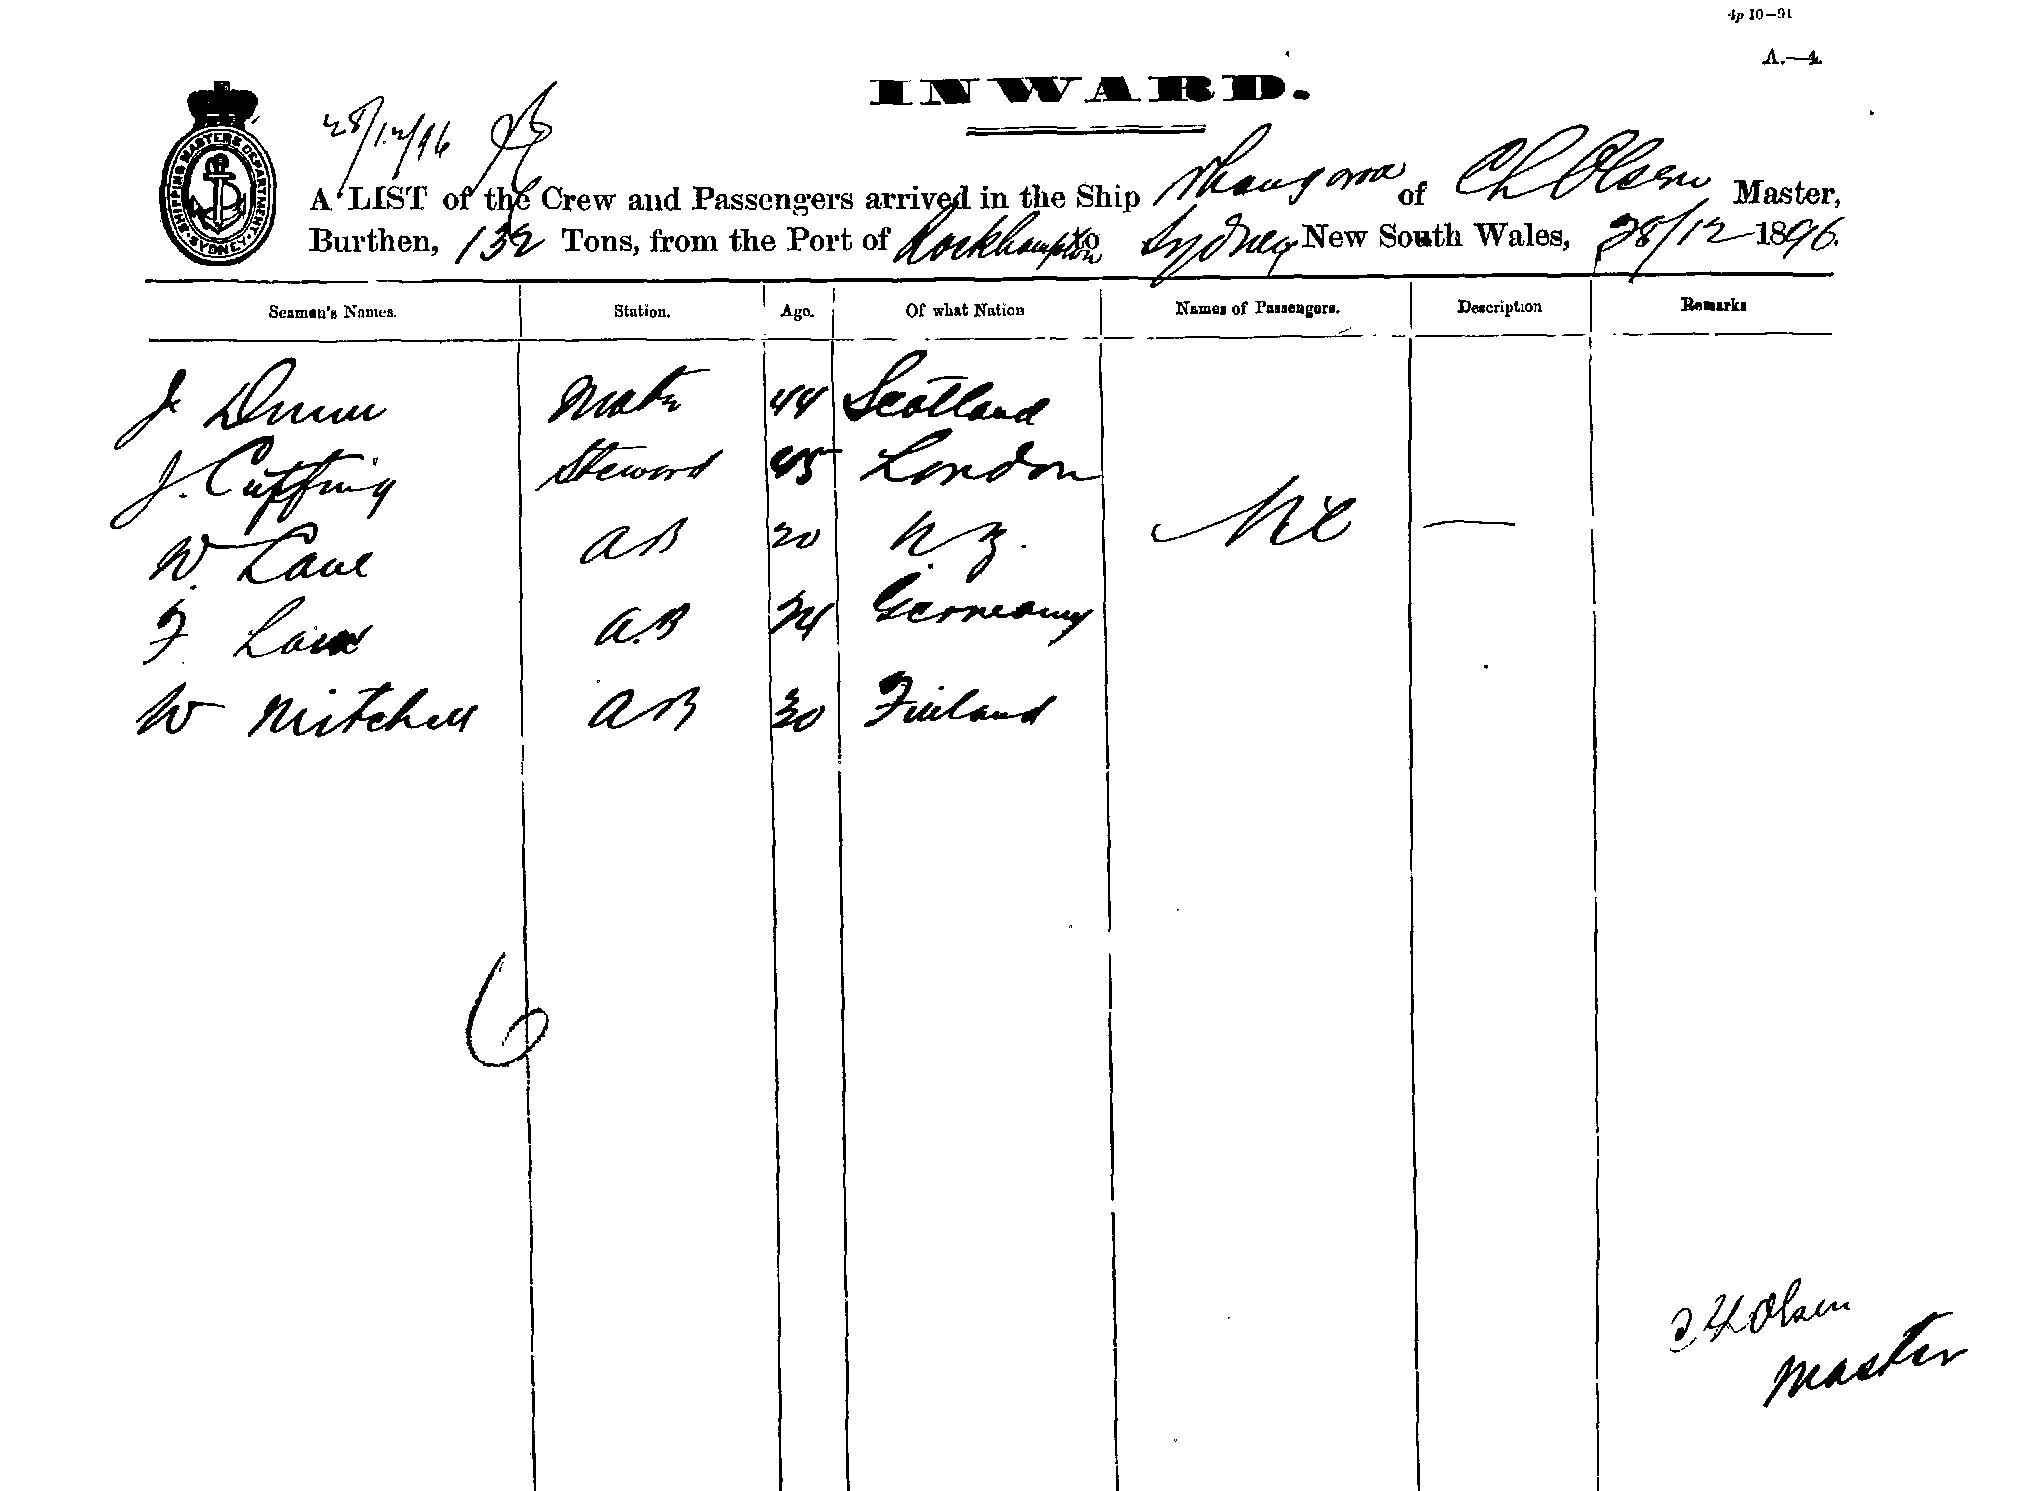 4p 10—91
A.—4.
INWARD.
28/12/96
SHIPPING MASTERS DEPARTMENT SYDNEY
A LIST of the Crew and Passengers arrived in the Ship Whangaroa of Ch Olsen Master,
Burthen, 132 Tons, from the Port of Rockhampton to Sydney New South Wales, 28/12 1896.
Seamen's Names. Station. Age. Of what Nation Names of Passengers. Description Remarks
J Dunn Mate 44 Scotland
J. Cuffing Steward 45 London
W. Lane AB 20 N.Z. Nil —
F A.B 24 Germany
W Mitchell AB 30 Finland
6
Olsen
Master